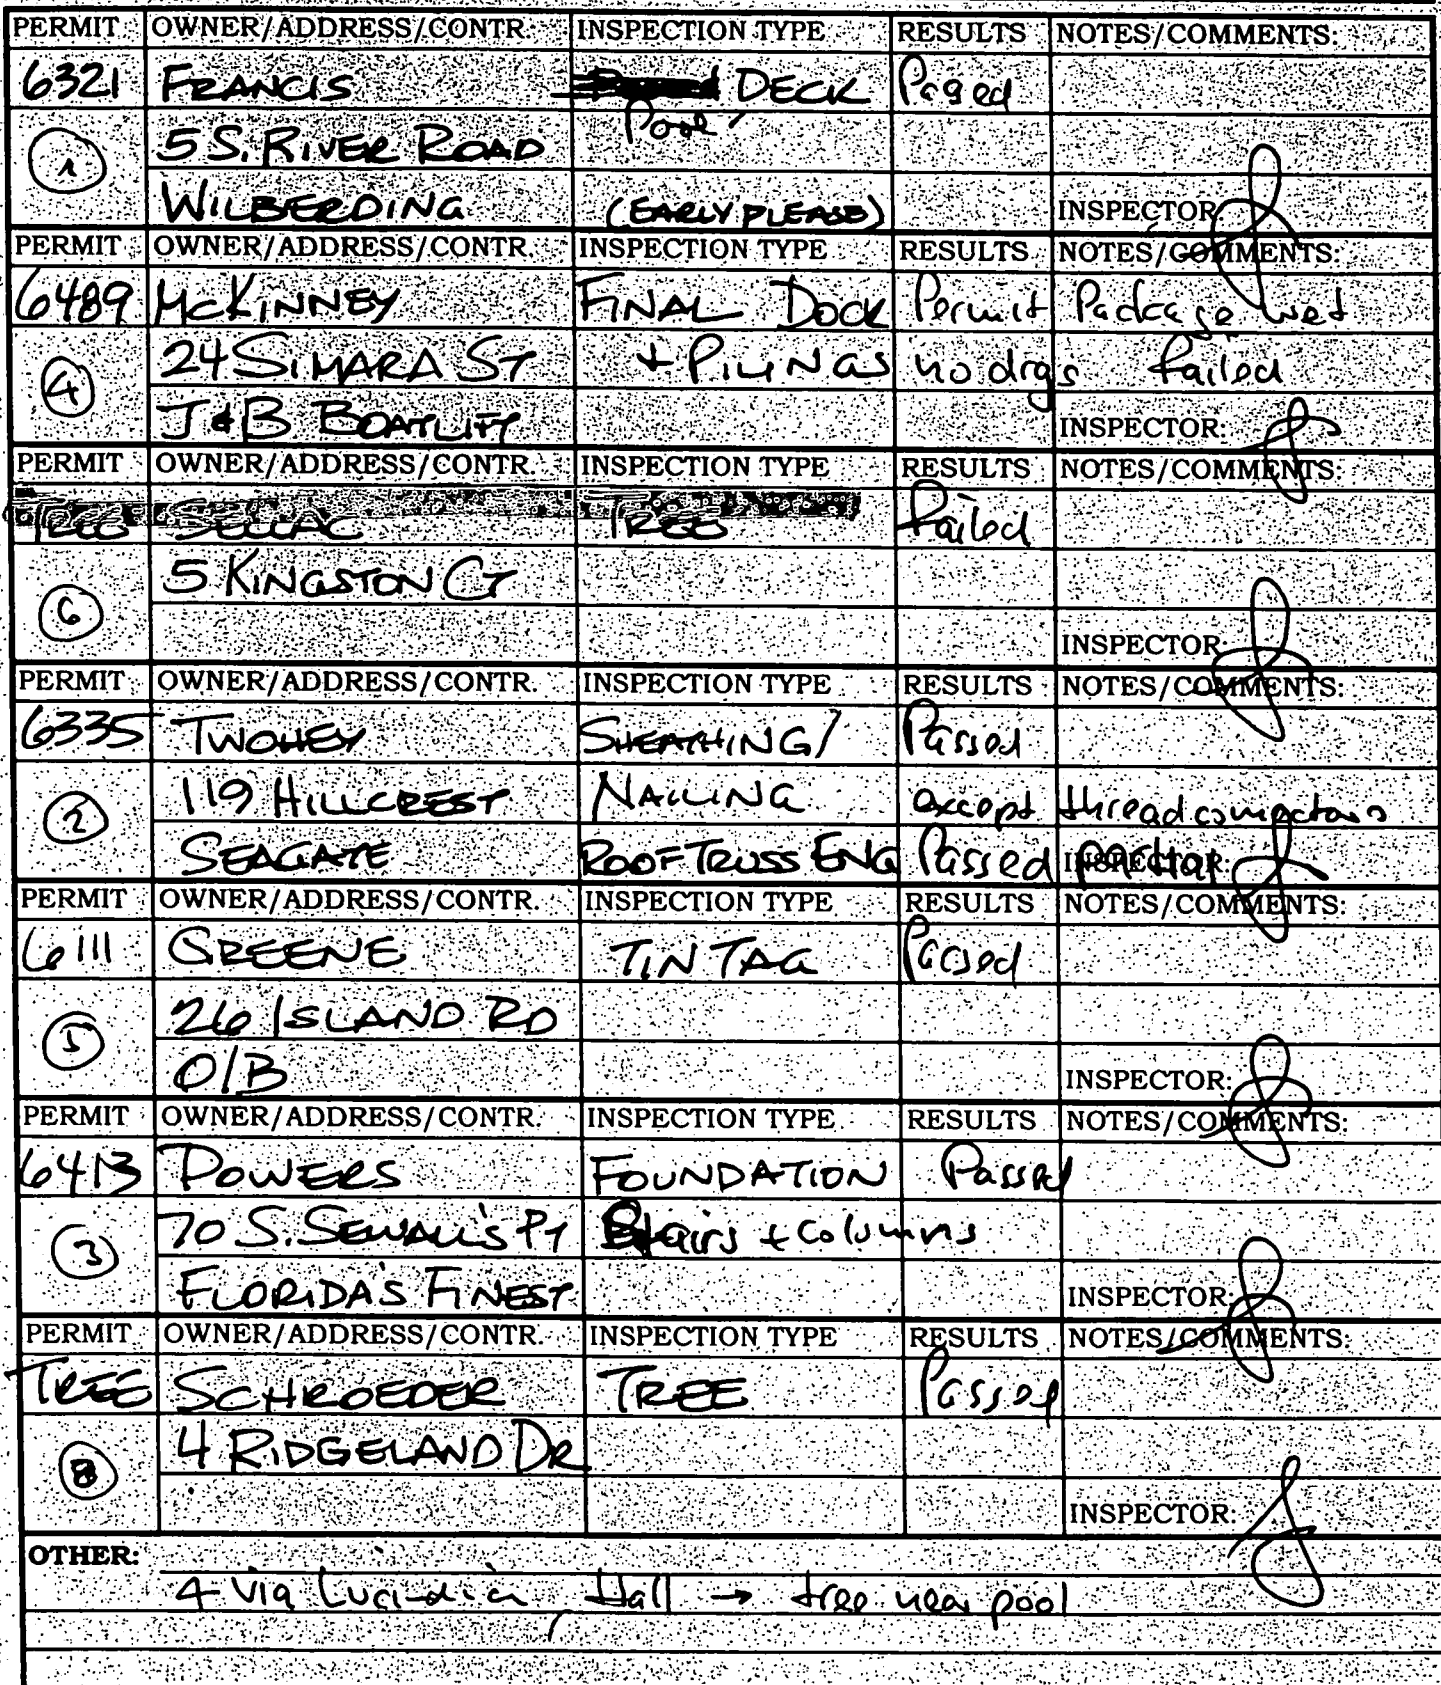 PERMIT OWNER/ADDRESS/CONTR. INSPECTION TYPE RESULTS NOTES/COMMENTS:
6321 FRANCIS DECK Passed
Pool
1 5 S. RIVER ROAD
WILBERDING (EARLY PLEASE) INSPECTOR:
PERMIT OWNER/ADDRESS/CONTR. INSPECTION TYPE RESULTS NOTES/COMMENTS:
6489 MCKINNEY FINAL DOCK Permit Package wet
4 24 SIMARA ST + PILINGS no drgs failed
J&B BOATLIFT INSPECTOR:
PERMIT OWNER/ADDRESS/CONTR. INSPECTION TYPE RESULTS NOTES/COMMENTS:
TREE TREE Failed
6 5 KINGSTON CT
INSPECTOR:
PERMIT OWNER/ADDRESS/CONTR. INSPECTION TYPE RESULTS NOTES/COMMENTS:
6335 TWOHEY SHEATHING/ Passed
2 119 HILLCREST NAILING except thread connectors
SEAGATE ROOF TRUSS ENG Passed partial INSPECTOR:
PERMIT OWNER/ADDRESS/CONTR. INSPECTION TYPE RESULTS NOTES/COMMENTS:
6111 GREENE TIN TAG Passed
5 26 ISLAND RD
O/B INSPECTOR:
PERMIT OWNER/ADDRESS/CONTR. INSPECTION TYPE RESULTS NOTES/COMMENTS:
6413 POWERS FOUNDATION Passed
3 70 S. SEWALL'S PT Stairs + Columns
FLORIDA'S FINEST INSPECTOR:
PERMIT OWNER/ADDRESS/CONTR. INSPECTION TYPE RESULTS NOTES/COMMENTS:
TREE SCHROEDER TREE Passed
8 4 RIDGELAND DR
INSPECTOR:
OTHER:
4 Via Lucindia, Hall → tree near pool